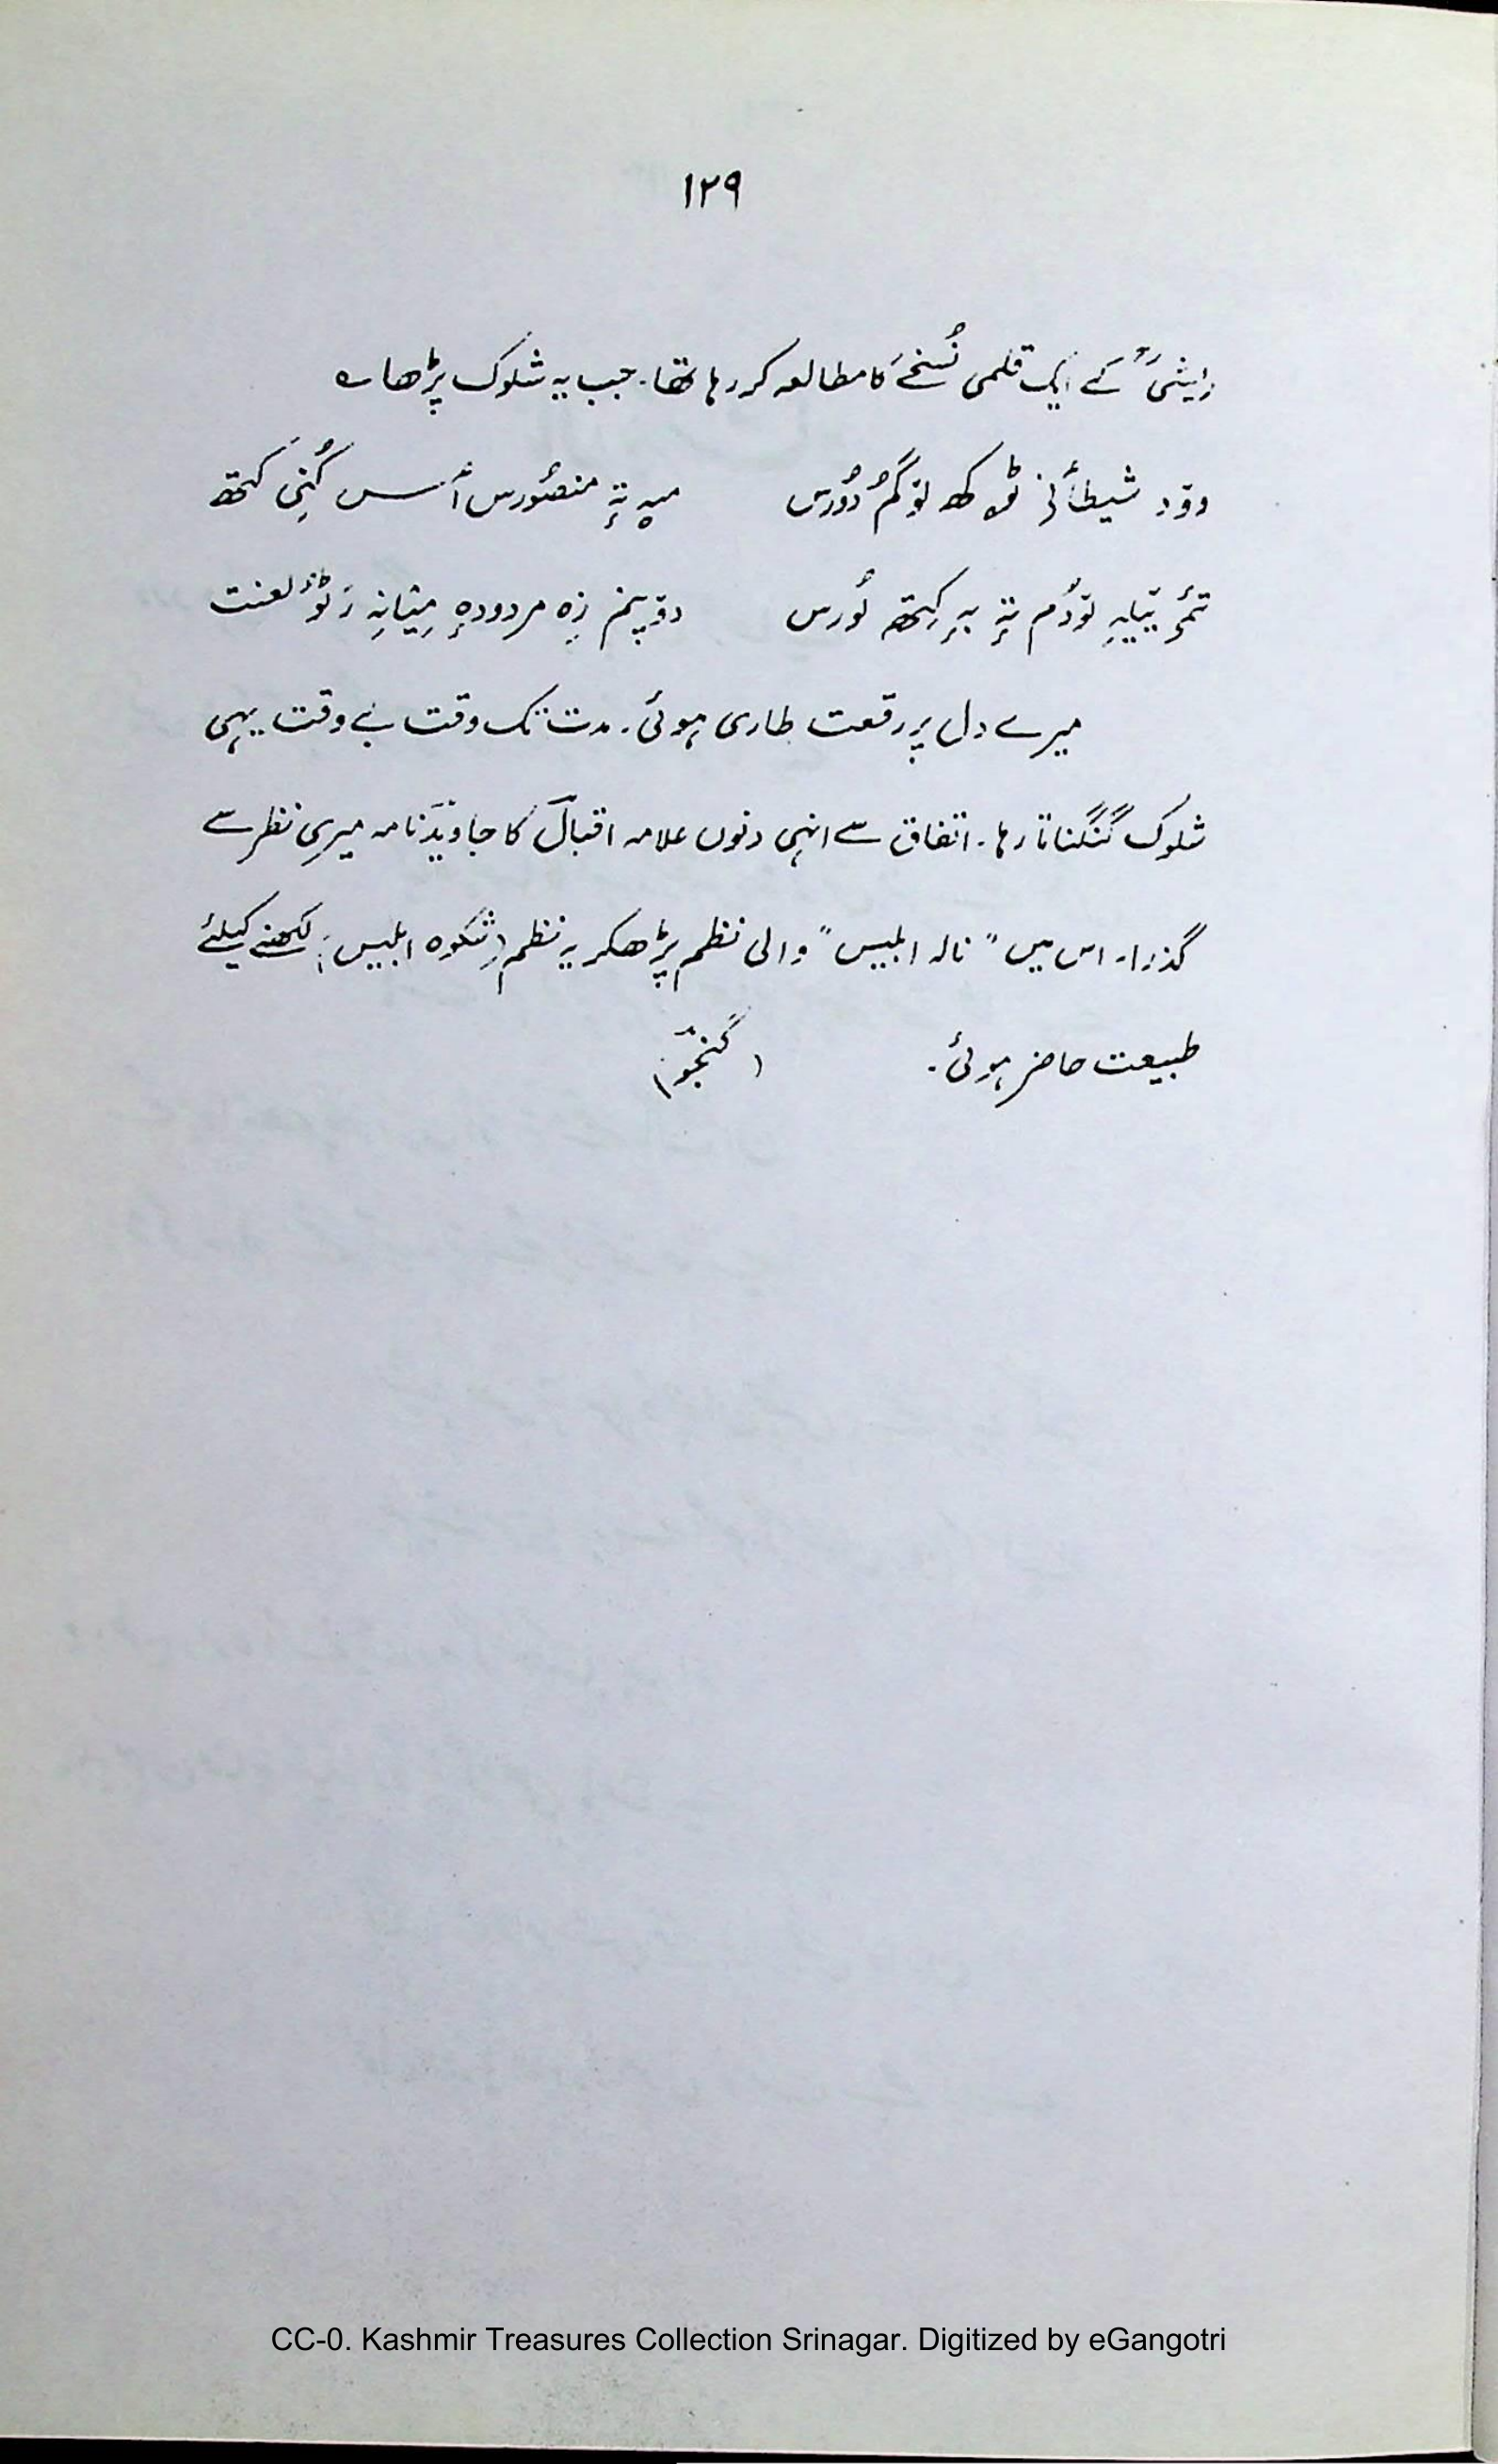 ۱۲۹
ریشیؒ کے ایک قلمی نُسخے کا مطالعہ کر رہا تھا۔ جب یہ شلوک پڑھا ؎
شیطأنۍ دُورس میہِ تہٕ منصوٗرس أسس کُنِی کتھ
تہٕ بہٕ کِتھ نُورس زِہ مردودہٕ میانہِ لعنت
میرے دل پر رقعت طاری ہوئی۔ مدت تک وقت بے وقت یہی
شلوک گنگناتا رہا۔ اتفاق سے انہی دنوں علامہ اقبالؔ کا جاوید نامہ میری نظر سے
گذرا۔ اس میں "نالہ ابلیس" والی نظم پڑھکر یہ نظم (شکوہ ابلیس) لکھنے کیلئے
طبیعت حاضر ہوئی۔ (گنجوؔ)
CC-0. Kashmir Treasures Collection Srinagar. Digitized by eGangotri